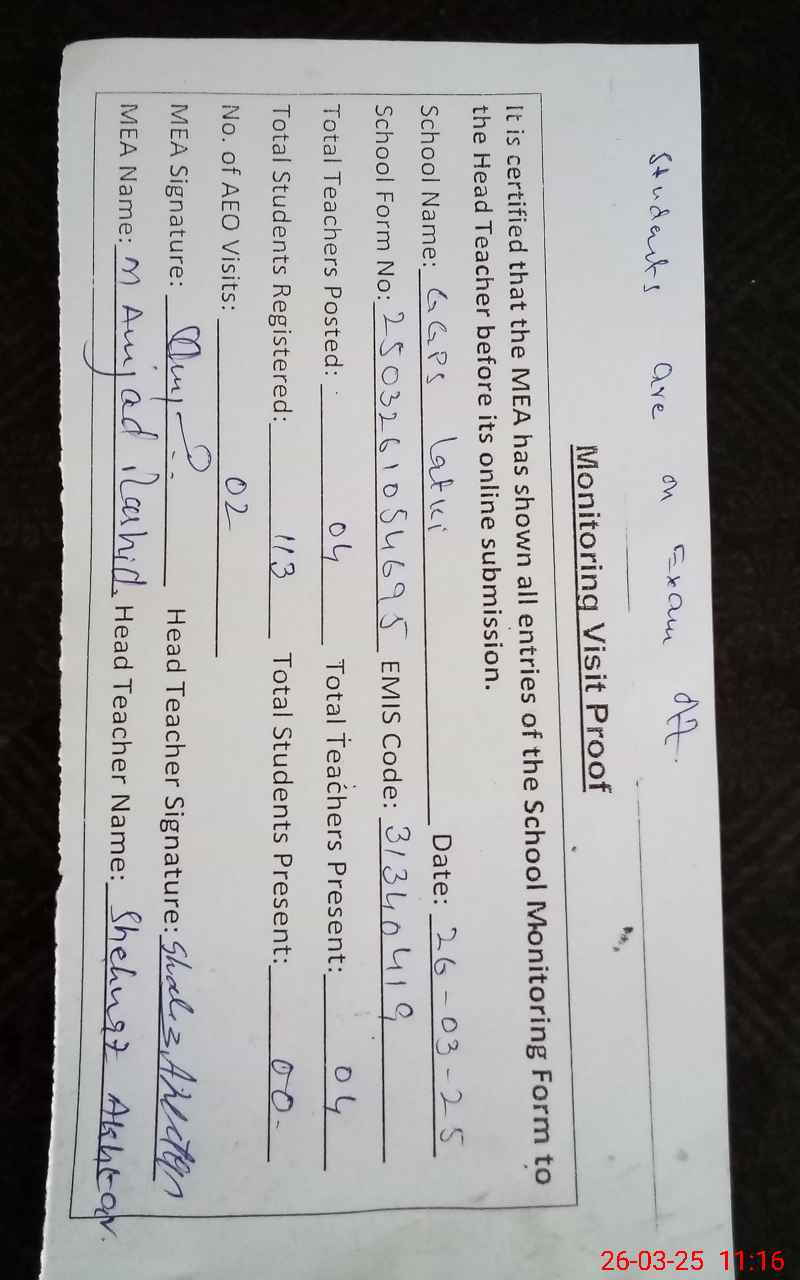 Students are on Exam off.
Monitoring Visit Proof
It is certified that the MEA has shown all entries of the School Monitoring Form to
the Head Teacher before its online submission.
School Name: GGPS Latki Date: 26-03-25
School Form No: 2503261054695 EMIS Code: 31340419
Total Teachers Posted: 04 Total Teachers Present: 04
Total Students Registered: 113 Total Students Present: 00-
No. of AEO Visits: 02
MEA Signature: Head Teacher Signature:
MEA Name: M Amjad Rashid Head Teacher Name: Shehnaz Akhtar.
26-03-25 11:16